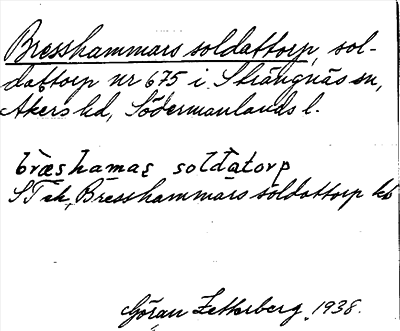 Bresshammars soldattorp, sol-
dattorp nr 675 i Strängnäs sn,
Åkers hd, Södermanlands l.
bræshamaʂ soldatorp
ST ek, Bresshammars soldattorp kb
Göran Zetterberg, 1938.